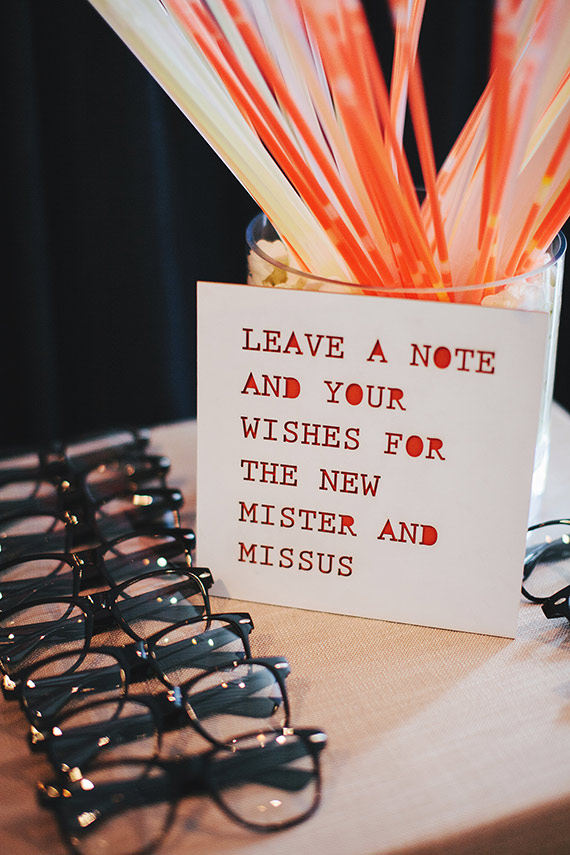 LEAVE A NOTE
AND YOUR
WISHES FOR
THE NEW
MISTER AND
MISSUS